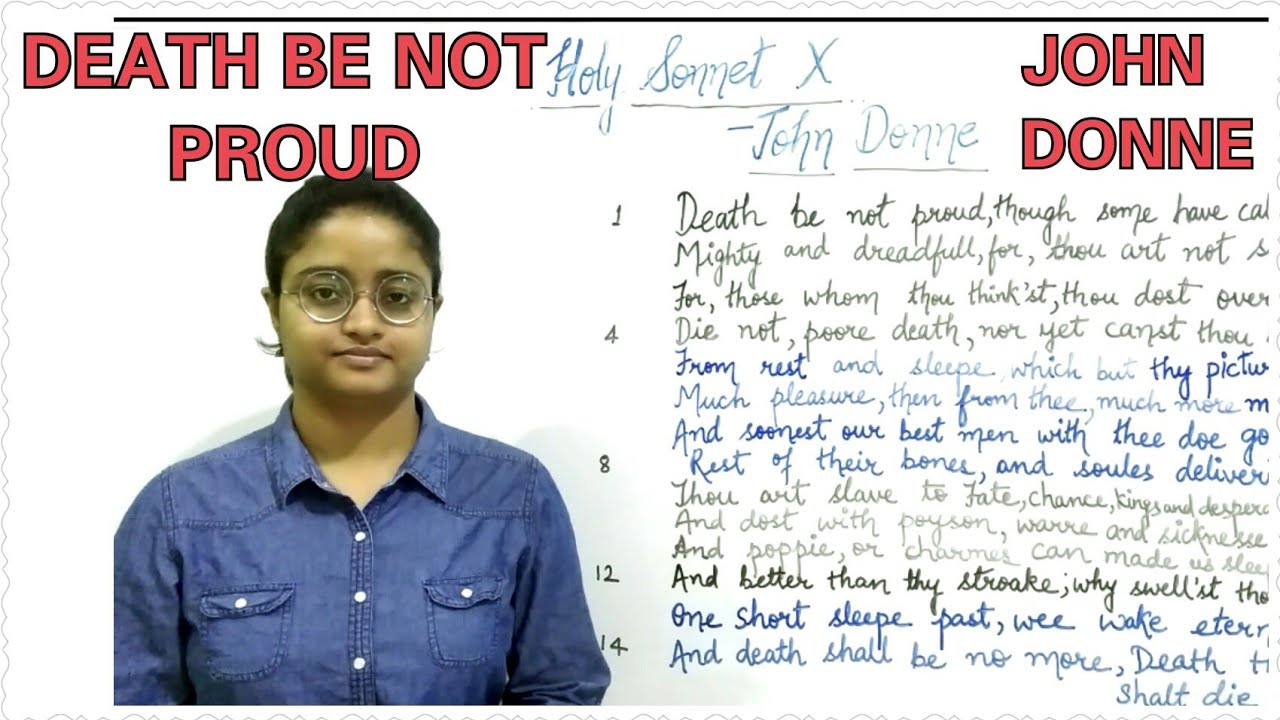 DEATH BE NOT
PROUD
JOHN
DONNE
Holy Sonnet X
-John Donne
1 Death be not proud, though some have cal
Mighty and dreadfull, for, thou art not s
For, those whom thou think'st, thou dost over
4 Die not, poore death, nor yet canst thou
From rest and sleepe, which but thy pictur
Much pleasure, then from thee, much more m
And soonest our best men with thee doe go
8 Rest of their bones, and soules deliveri
Thou art slave to Fate, chance, kings and despera
And dost with poyson, warre and sicknesse
And poppie, or charmes can made us sleep
12 And better than thy stroake; why swell'st tho
One short sleepe past, wee wake etern
14 And death shall be no more, Death t
shalt die